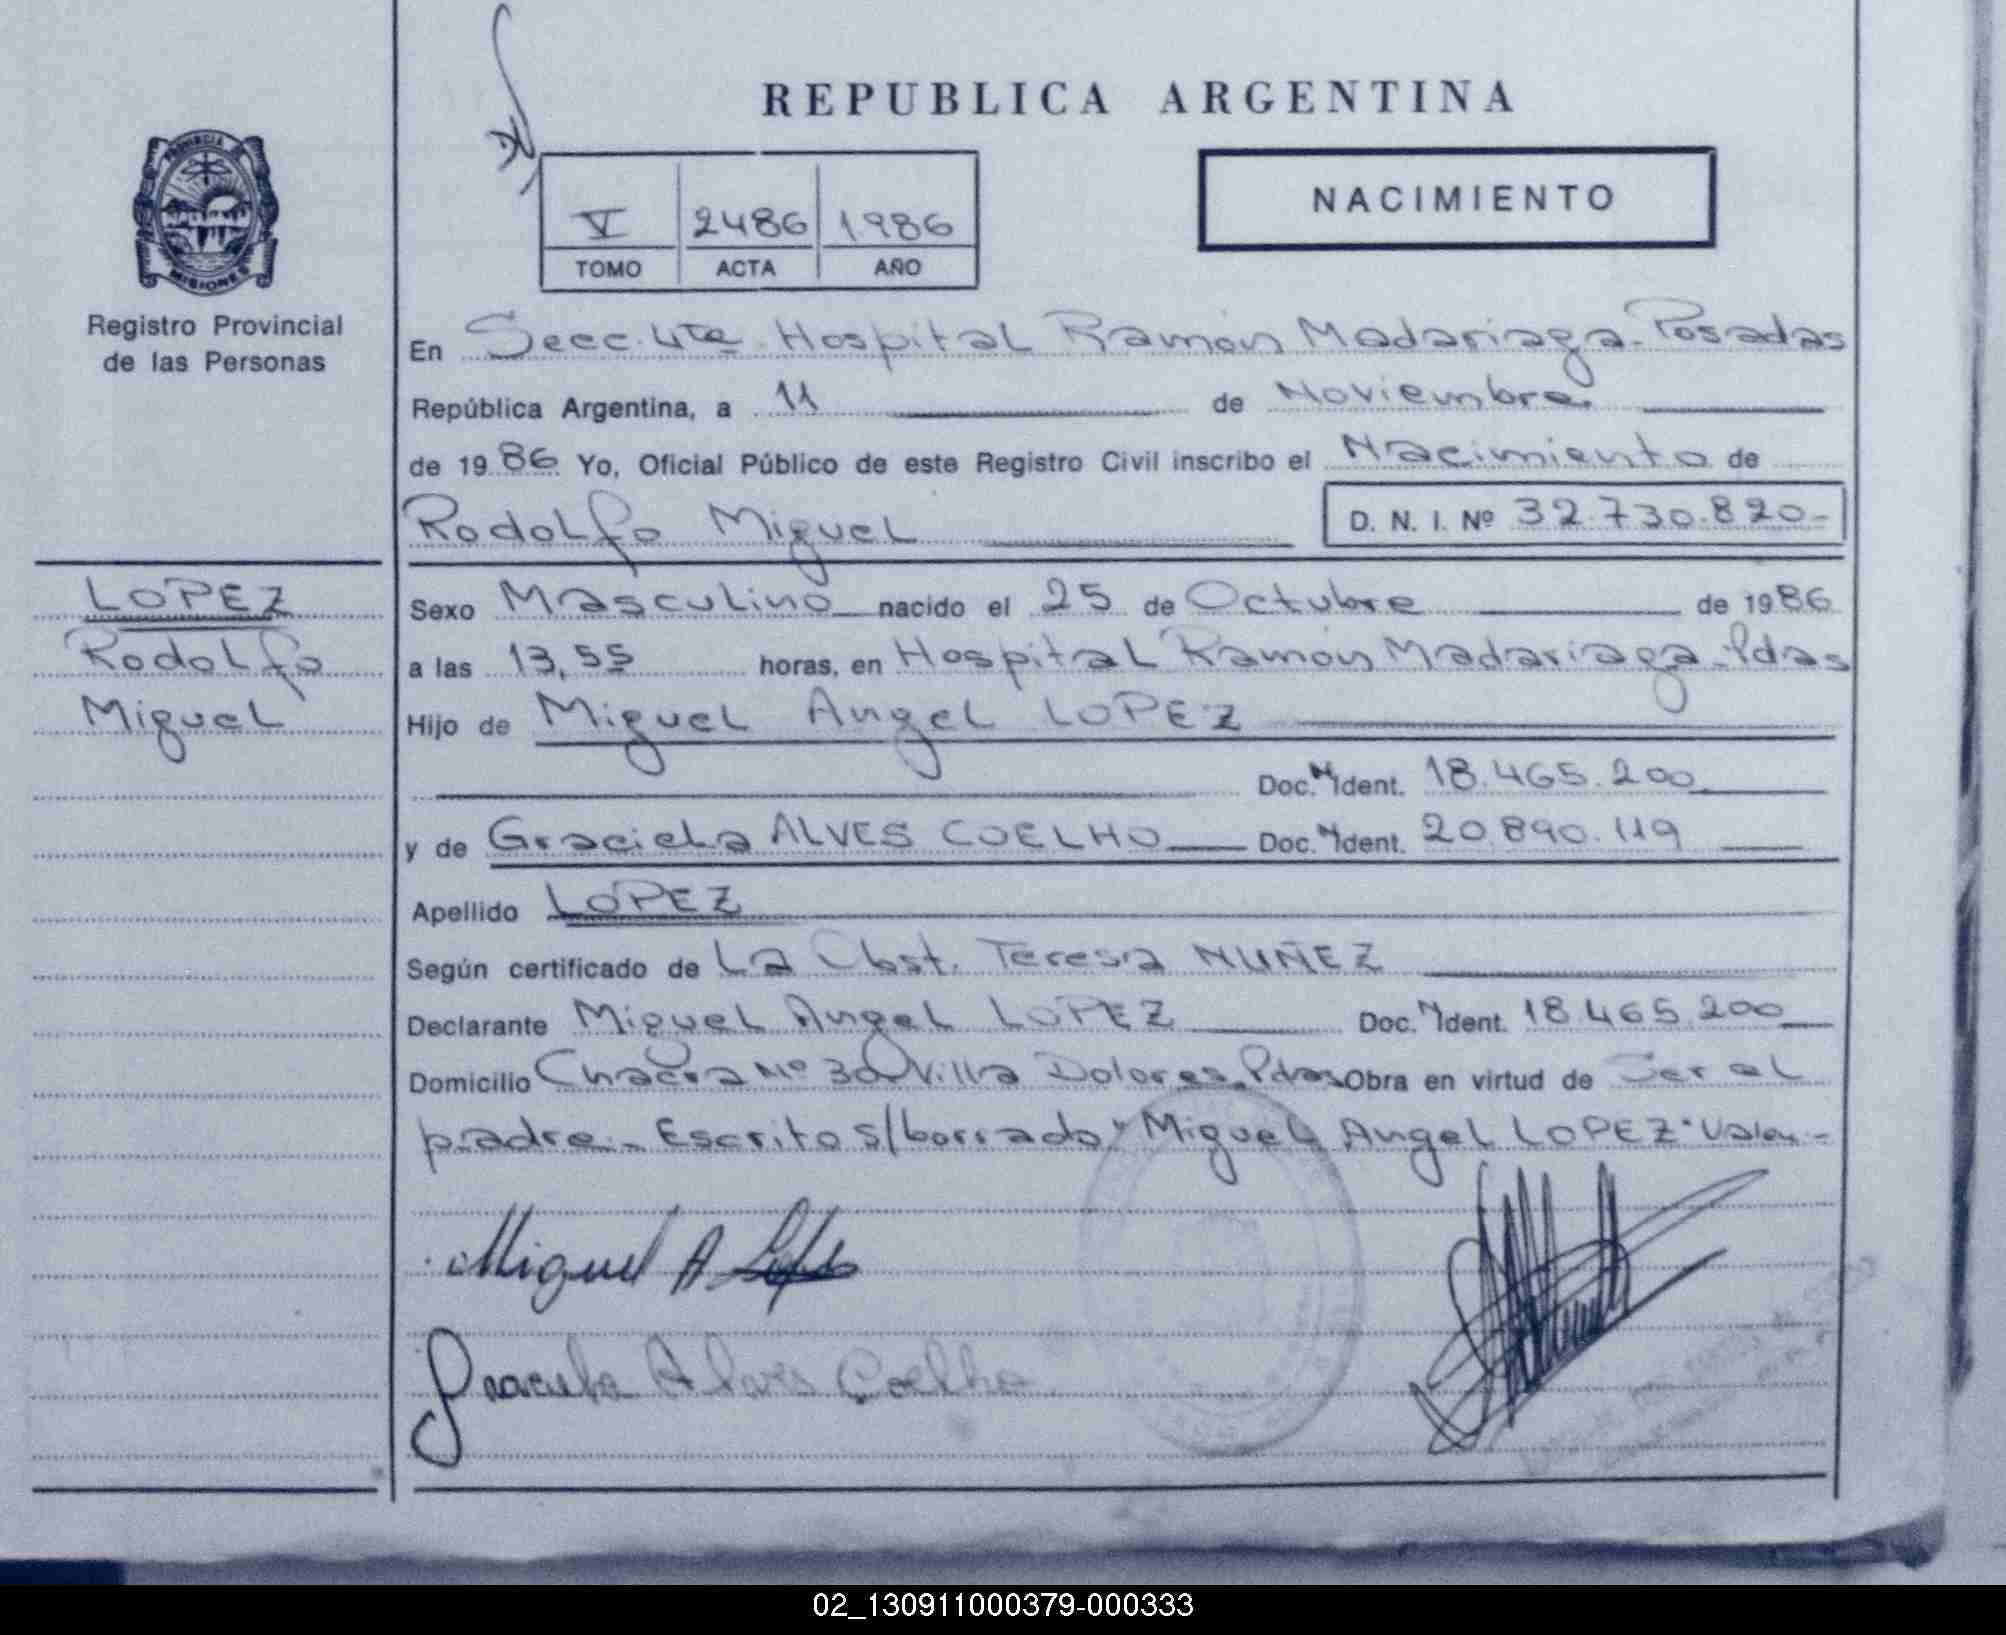 REPUBLICA ARGENTINA
PROVINCIA DE
MISIONES
Registro Provincial
de las Personas
V 2486 1986
TOMO ACTA AÑO
NACIMIENTO
En Secc. 4ta. Hospital Ramón Madariaga - Posadas
República Argentina, a 11 de Noviembre
de 1986 Yo, Oficial Público de este Registro Civil inscribo el Nacimiento de
Rodolfo Miguel D. N. I. Nº 32.730.820-
LOPEZ
Rodolfo
Miguel
Sexo Masculino nacido el 25 de Octubre de 1986
a las 13,55 horas, en Hospital Ramón Madariaga - Pdas
Hijo de Miguel Angel LOPEZ
Doc. N Ident. 18.465.200
y de Graciela ALVES COELHO Doc. N Ident. 20.890.119
Apellido LOPEZ
Según certificado de La Obst. Teresa NUÑEZ
Declarante Miguel Angel LOPEZ Doc. N Ident. 18.465.200
Domicilio Chacra Nº 30 Villa Dolores. Pdas Obra en virtud de Ser el
padre.- Escrito s/borrado "Miguel Angel LOPEZ" Vale.-
Miguel A
Graciela Alves Coelho
02_130911000379-000333